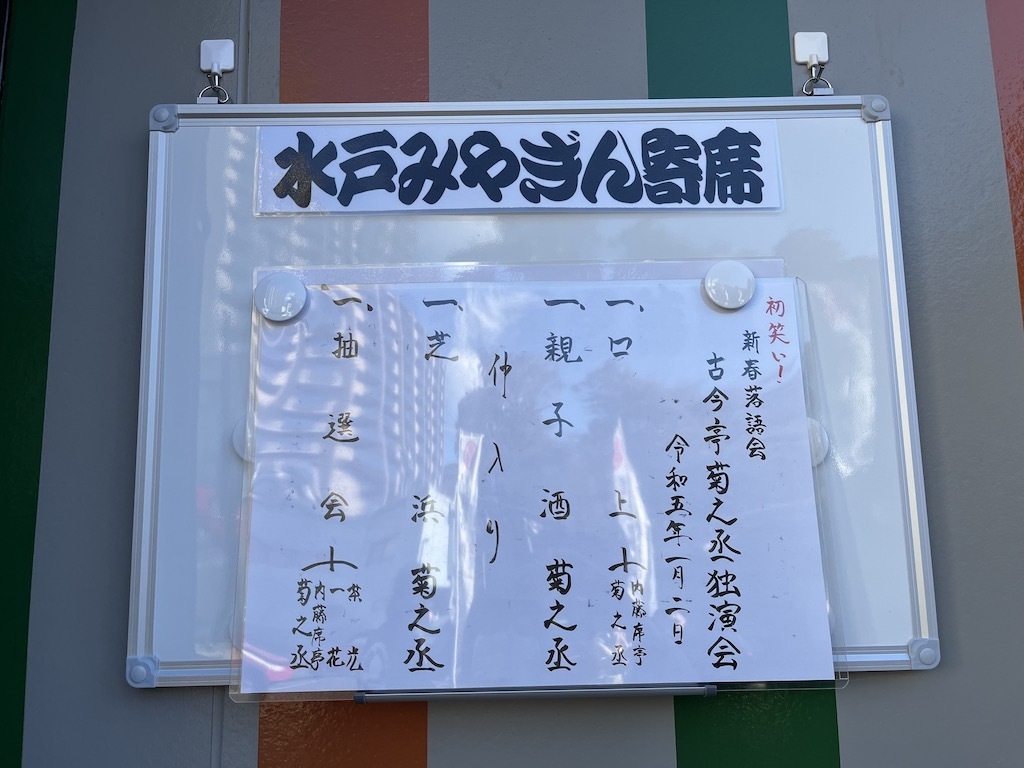 水戸みやぎん寄席
初笑い!
新春落語会
古今亭菊之丞独演会
令和五年一月二日
一、口上
内藤席亭
菊之丞
一、親子酒 菊之丞
仲入り
一、芝浜 菊之丞
一、抽選会
一花
内藤席亭
菊之丞